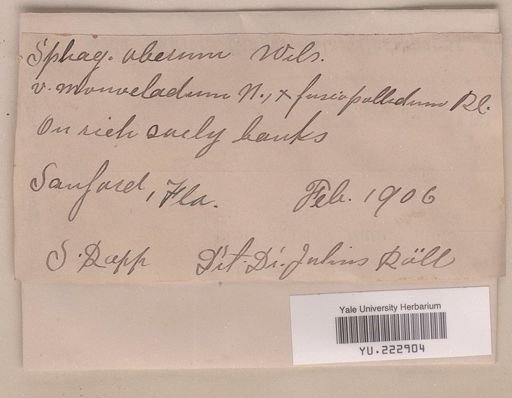 Sphag. obesum Wils.
v. monocladum N., x fuscopallidum Rl.
On rich soely banks
Sanford, Fla. Feb. 1906
S. Rapp Dit. Dr. Julius Röll
Yale University Herbarium
YU.222904